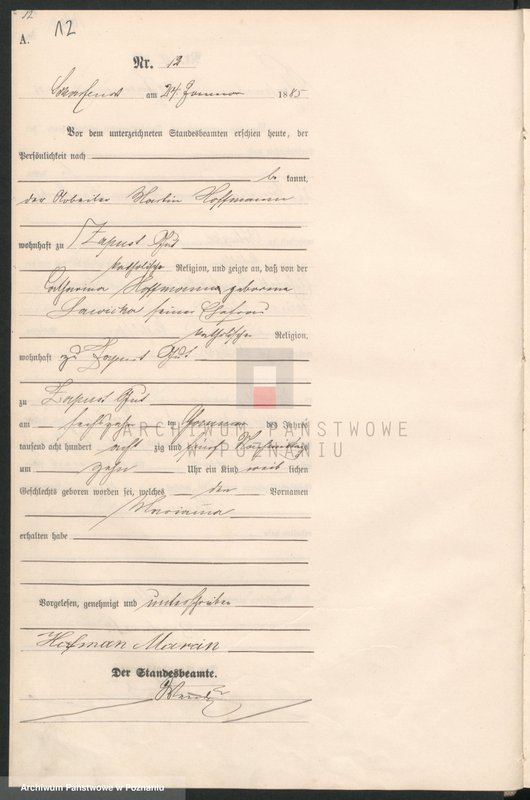 12
A.
12
Nr. 12
am 24 Januar 1885
Vor dem unterzeichneten Standesbeamten erschien heute, der
Persönlichkeit nach
be kannt,
der Arbeiter Martin Hoffmann
wohnhaft zu Zapust Gut
katholischer Religion, und zeigte an, daß von der
Catharina Hoffmann geborene
Lawicka seiner Ehefrau
katholischer Religion,
wohnhaft zu Zapust Gut
zu Zapust Gut
am sechszehn ten Januar des Jahres
tausend acht hundert acht zig und fünf Nachmittag
um zehn Uhr ein Kind weib lichen
Geschlechts geboren worden sei, welches den Vornamen
Marianna
erhalten habe
Vorgelesen, genehmigt und unterschrieben
Hofman Marcin
Der Standesbeamte.
ARCHIWUM PAŃSTWOWE
W POZNANIU
Archiwum Państwowe w Poznaniu